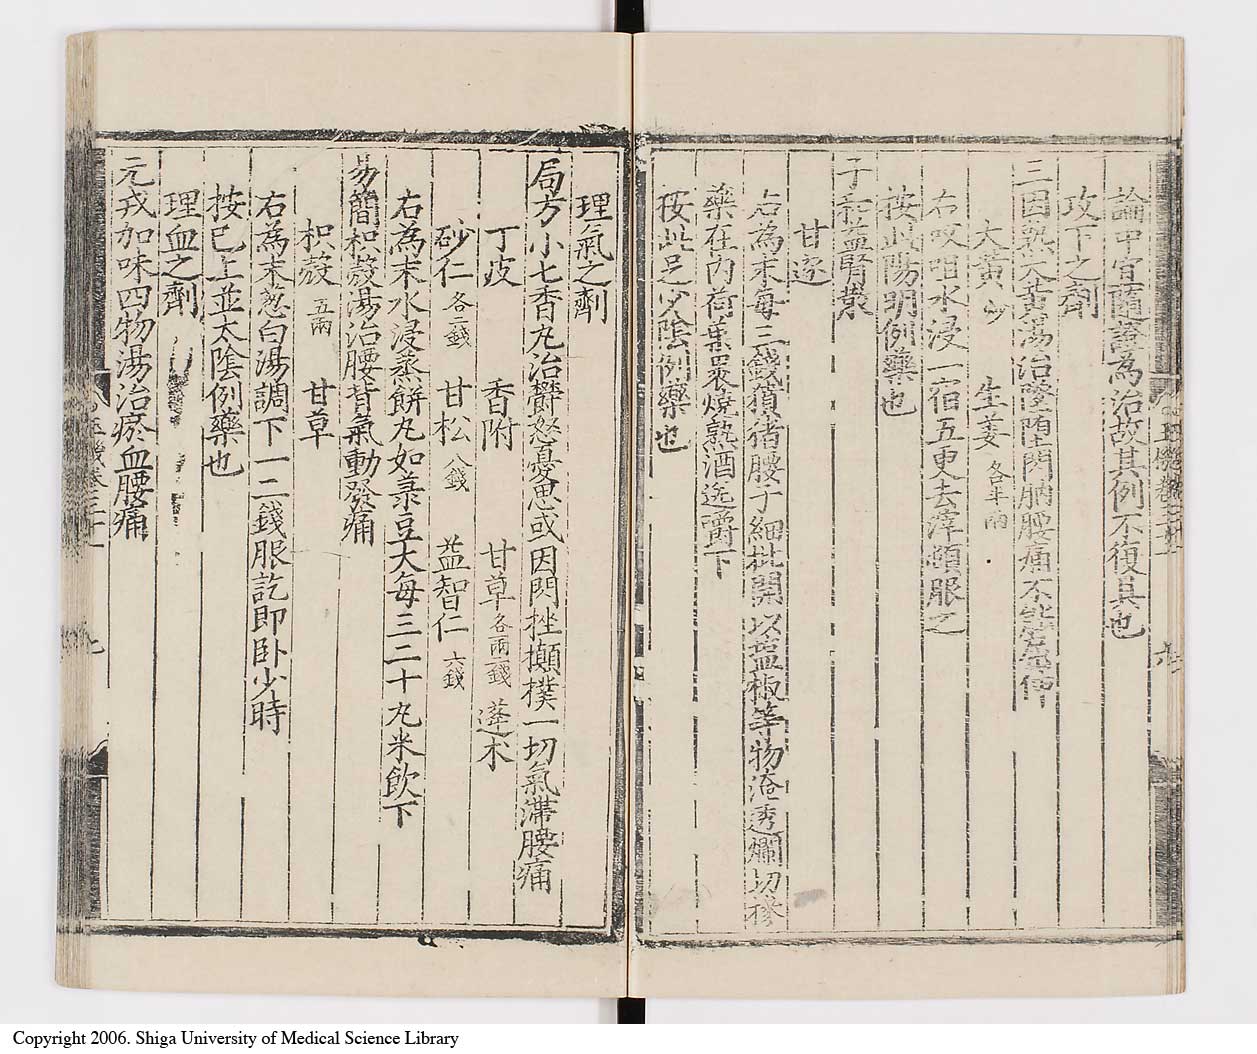 論中宜隨證為治故其例不復具也
攻下之劑
三因熟大黃湯治墜墮閃肭腰痛不能屈伸
大黃炒 生姜各半兩
右㕮咀水浸一宿五更去滓頓服之
按此陽明例藥也
子和益腎散
甘遂
右為末每三錢豶猪腰子細批開以盐椒等物淹透爛切摻
藥在內荷葉裹燒熟酒送嚼下
按此足少陰例藥也
理氣之劑
局方小七香丸治鬱怒憂思或因閃挫攧撲一切氣滯腰痛
丁皮 香附 甘草各兩二錢 蓬朮
砂仁各二錢 甘松八錢 益智仁六錢
右為末水浸蒸餅丸如菉豆大每三二十丸米飲下
易簡枳殼湯治腰背氣動發痛
枳殼五兩 甘草
右為末葱白湯調下一二錢服訖即卧少時
按已上並太陰例藥也
理血之劑
元戎加味四物湯治瘀血腰痛